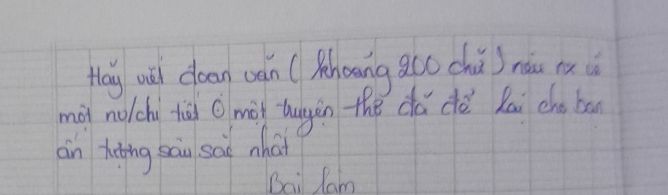 Hãy viết đoạn văn (khoảng 200 chữ) nêu nx về
một nv/chi tiết ở một truyện thơ đã để lại cho bạn
ấn tượng sâu sắc nhất
Bài làm